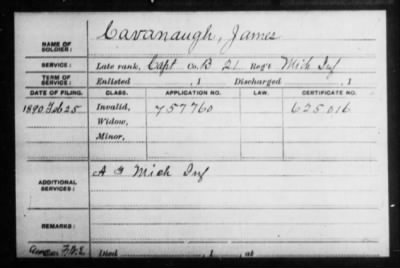 NAME OF SOLDIER: Cavanaugh, James
SERVICE: Late rank, Capt Co. B 21 Reg't Mich Inf
TERM OF SERVICE: Enlisted , 1 Discharged , 1
DATE OF FILING. CLASS. APPLICATION NO. LAW. CERTIFICATE NO.
1890 Feb 25 Invalid, 757760 625016
Widow,
Minor,
ADDITIONAL SERVICES: A 3 Mich Inf
REMARKS:
Died , 1 , at